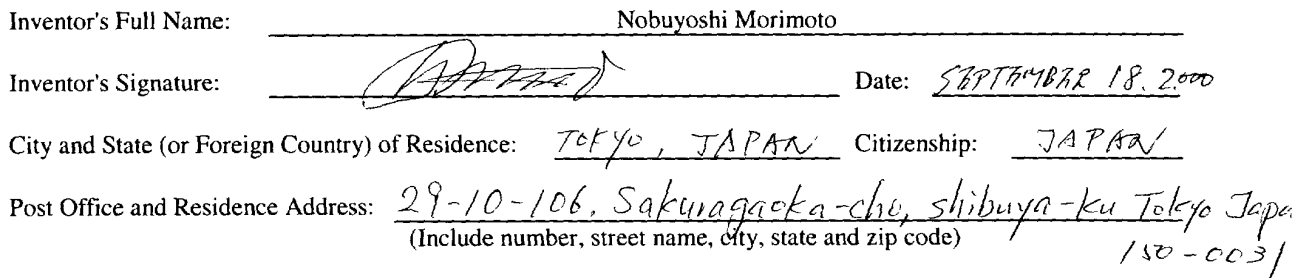 Inventor's Full Name: Nobuyoshi Morimoto
Inventor's Signature: Date: SEPTEMBER 18. 2000
City and State (or Foreign Country) of Residence: TOKYO, JAPAN Citizenship: JAPAN
Post Office and Residence Address: 29-10-106, Sakuragaoka-cho, shibuya-ku Tokyo Japa
(Include number, street name, city, state and zip code)
150-0031